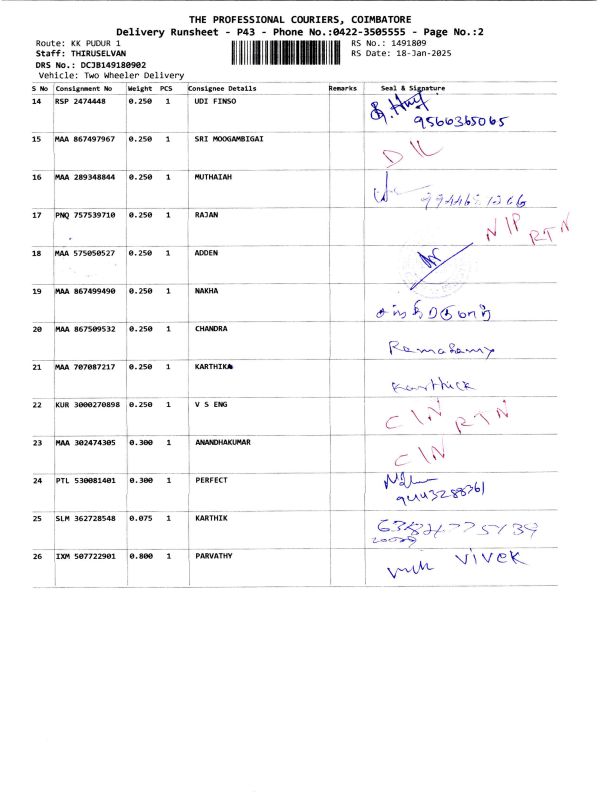 THE PROFESSIONAL COURIERS, COIMBATORE
Delivery Runsheet - P43 - Phone No.:0422-3505555 - Page No.:2
Route: KK PUDUR 1 RS No.: 1491809
Staff: THIRUSELVAN RS Date: 18-Jan-2025
DRS No.: DCJB149180902
Vehicle: Two Wheeler Delivery
S No Consignment No Weight PCS Consignee Details Remarks Seal & Signature
14 RSP 2474448 0.250 1 UDI FINSO
9566365065
15 MAA 867497967 0.250 1 SRI MOOGAMBIGAI
D\L
16 MAA 289348844 0.250 1 MUTHAIAH
17 PNQ 757539710 0.250 1 RAJAN N\P RTN
18 MAA 575050527 0.250 1 ADDEN
19 MAA 867499490 0.250 1 NAKHA
20 MAA 867509532 0.250 1 CHANDRA
Ramasamy
21 MAA 707087217 0.250 1 KARTHIKA
Karthick
22 KUR 3000270898 0.250 1 V S ENG C\N RTN
23 MAA 302474305 0.300 1 ANANDHAKUMAR C\N
24 PTL 530081401 0.300 1 PERFECT
9443288361
25 SLM 362728548 0.075 1 KARTHIK
26 IXM 507722901 0.800 1 PARVATHY vivek